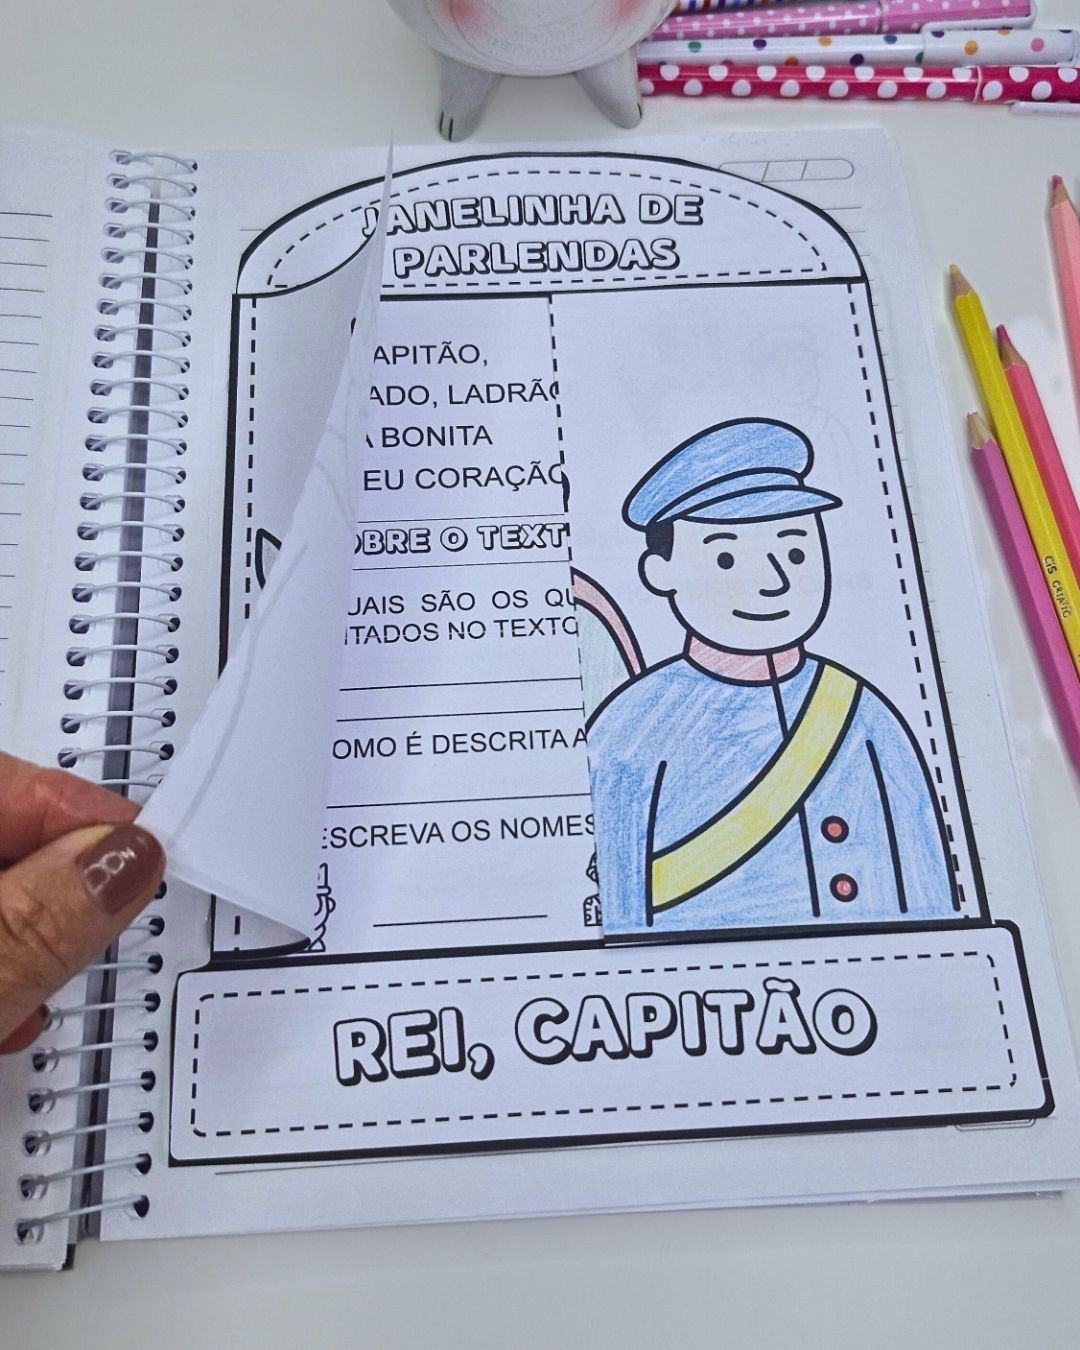 JANELINHA DE
PARLENDAS
APITÃO,
ADO, LADRÃO
BONITA
EU CORAÇÃO
OBRE O TEXT
UAIS SÃO OS QU
ITADOS NO TEXTO
OMO É DESCRITA A
ESCREVA OS NOMES
REI, CAPITÃO
CiS CRIATIC